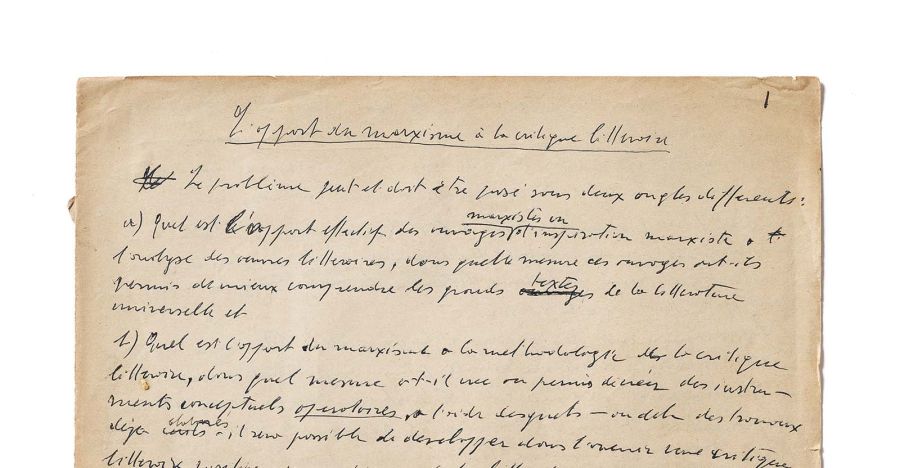 1
L'apport du marxisme à la critique litteraire
Le problème peut et doit être posé sous deux angles differents:
marxistes ou
a) Quel est l'apport effectif des ouvrages d'inspiration marxiste a
l'analyse des œuvres litteraires, dans quelle mesure ces ouvrages ont-ils
textes
permis de mieux comprendre les grands de la litterature
universelle et
b) Quel est l'apport du marxisme a la methodologie de la critique
litteraire, dans quel mesure a-t-il cree ou permis de créer des instru-
ments conceptuels operatoires, a l'aide desquels - au dela des travaux
deja - il sera possible de developper dans l'avenir une critique
litteraire